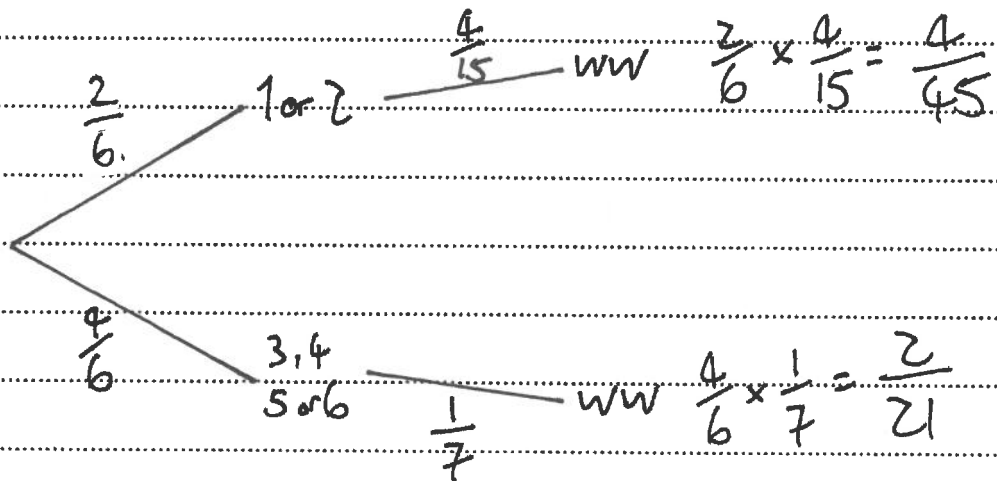 2/6 1 or 2 4/15 WW 2/6 × 4/15 = 4/45
4/6 3,4 5 or 6 1/7 WW 4/6 × 1/7 = 2/21